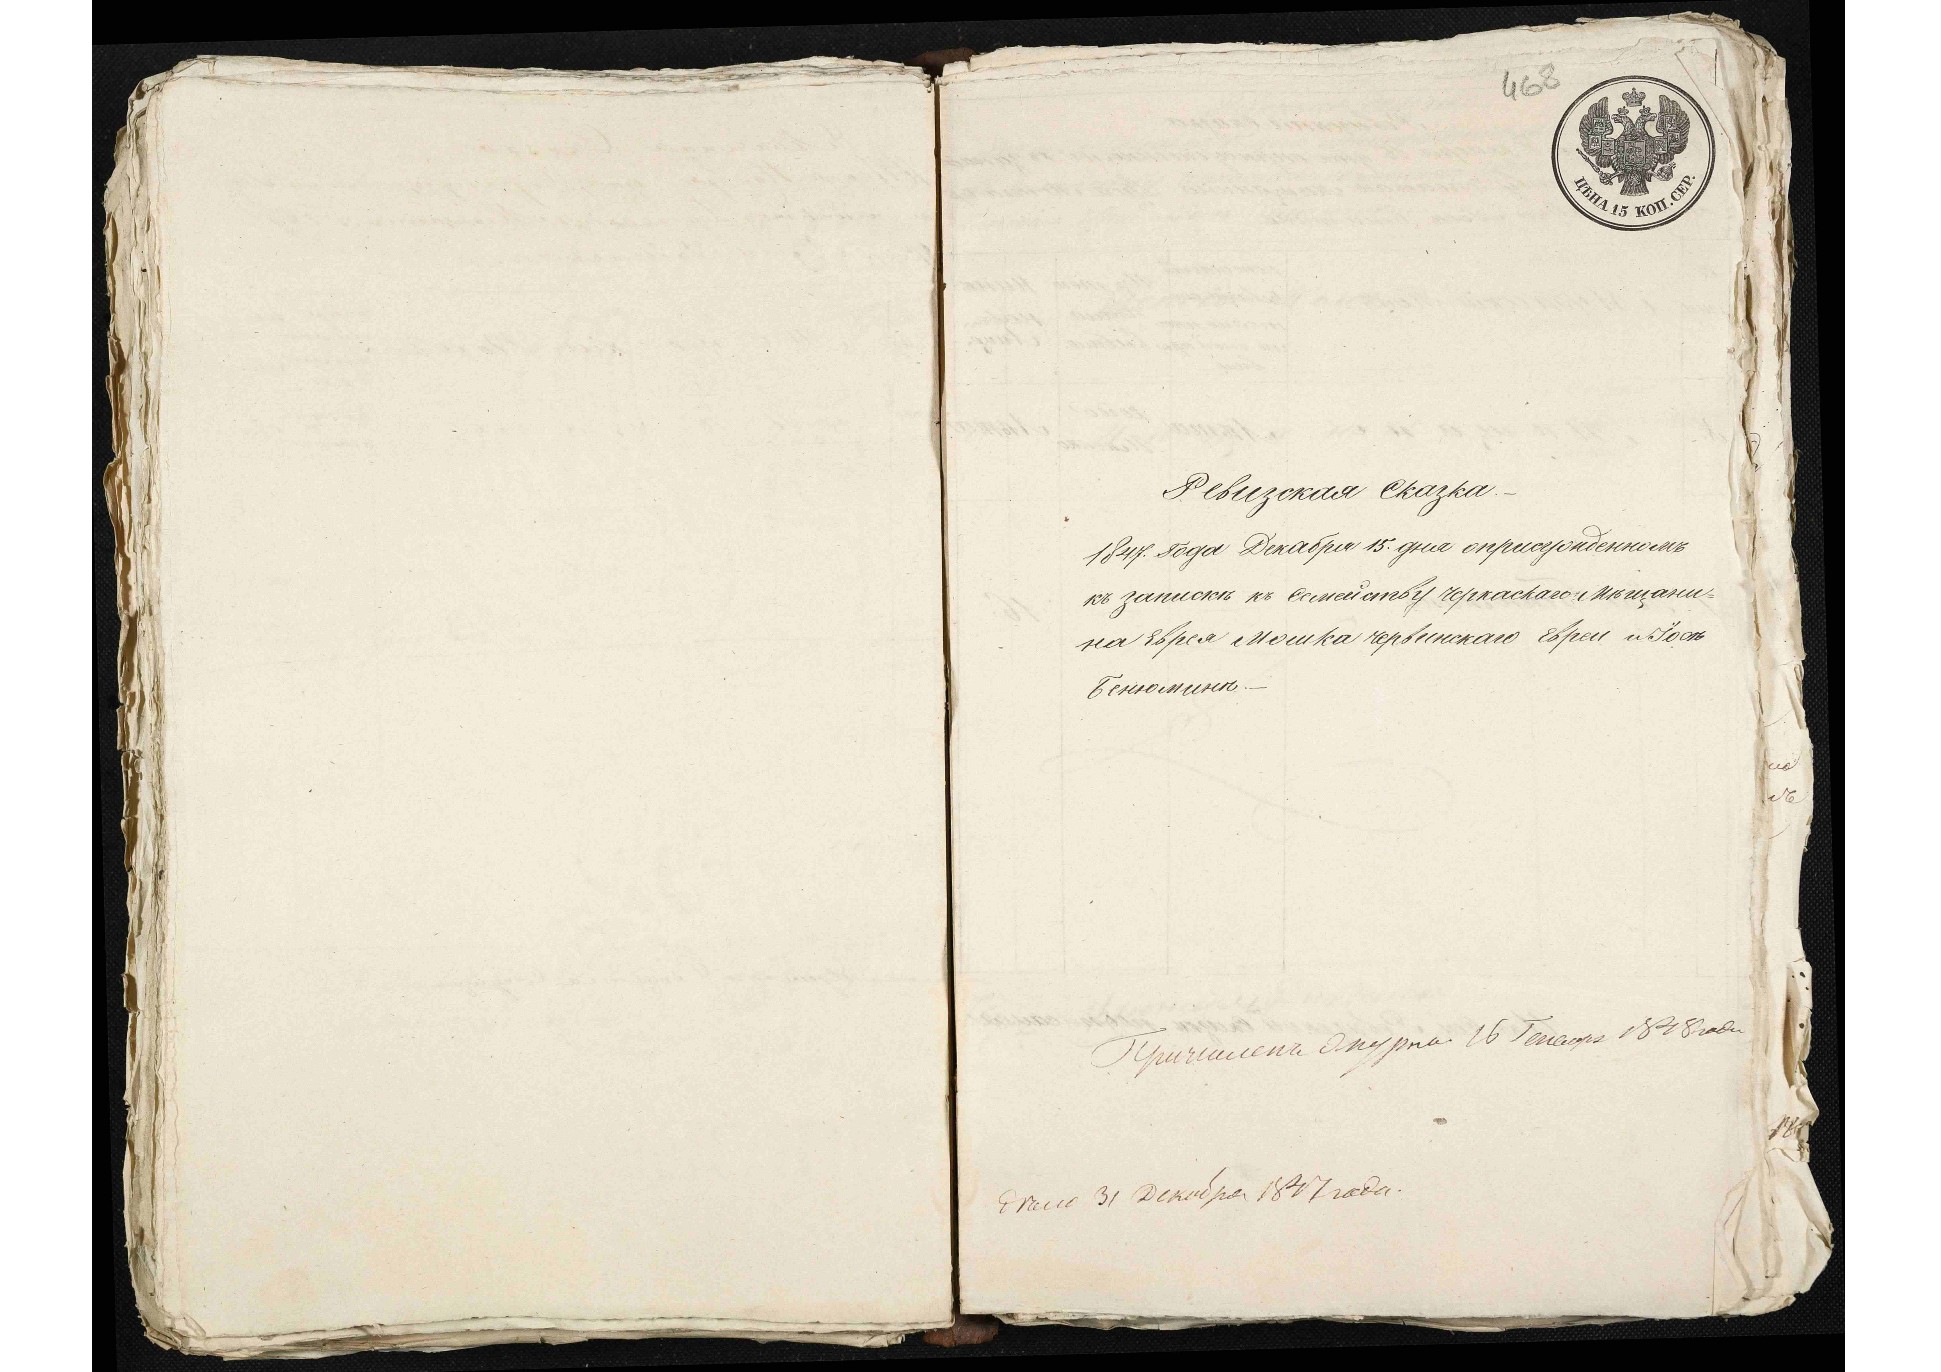 468
ЦѢНА 15 КОП. СЕР.
Ревизская Сказка. —
1847. Года Декабря 15. дня оприсужденномъ
къ запискѣ къ Семейству Черкаскаго Мѣщани=
на Еврея Мошка Червинскаго Евреи
Бенюминъ. —
Причисленъ 16 Генваря 1848 года
31 Декабря 1847 года.